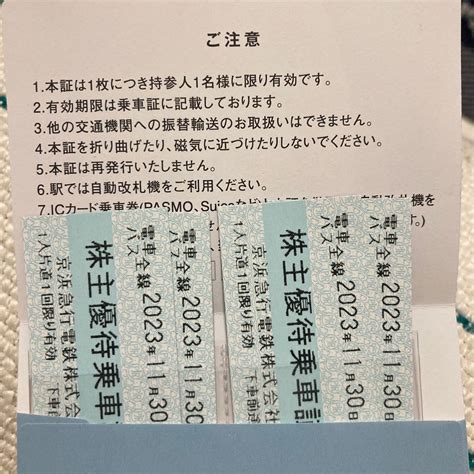 ご注意
1.本証は1枚につき持参人1名様に限り有効です。
2.有効期限は乗車証に記載しております。
3.他の交通機関への振替輸送のお取扱いはできません。
4.本証を折り曲げたり、磁気に近づけたりしないでください。
5.本証は再発行いたしません。
6.駅では自動改札機をご利用ください。
7.ICカード乗車券(PASMO、Suica
自動改札機を
す。)
電車全線 2023年11月30
バス全線 2023年11月30
株主優待乗車
京浜急行電鉄株式会
1人片道1回限り有効 下車前
電車全線 2023年11月30日
バス全線 2023年11月30日
株主優待乗車証
京浜急行電鉄株式会社
1人片道1回限り有効 下車前途